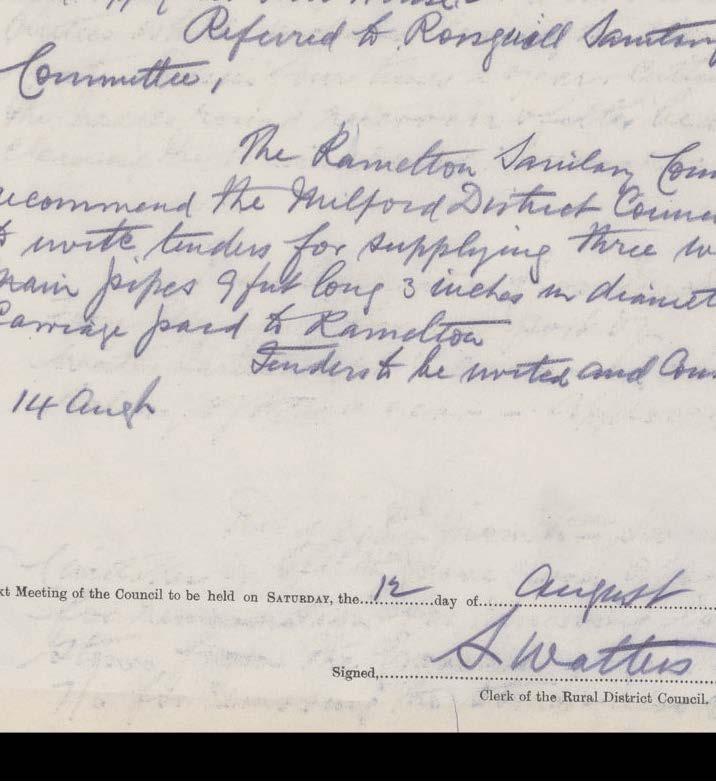 Referred to Rosguill Sanitary
Committee,
The Ramelton Sanitary Com
recommend the Milford District Counc
to invite tenders for supplying three
main pipes 9 feet long 3 inches in diamet
Carriage paid to Ramelton
Tenders to be invited and Con
14 Augt
xt Meeting of the Council to be held on SATURDAY, the 12 day of August
Signed, S Watters
Clerk of the Rural District Council.